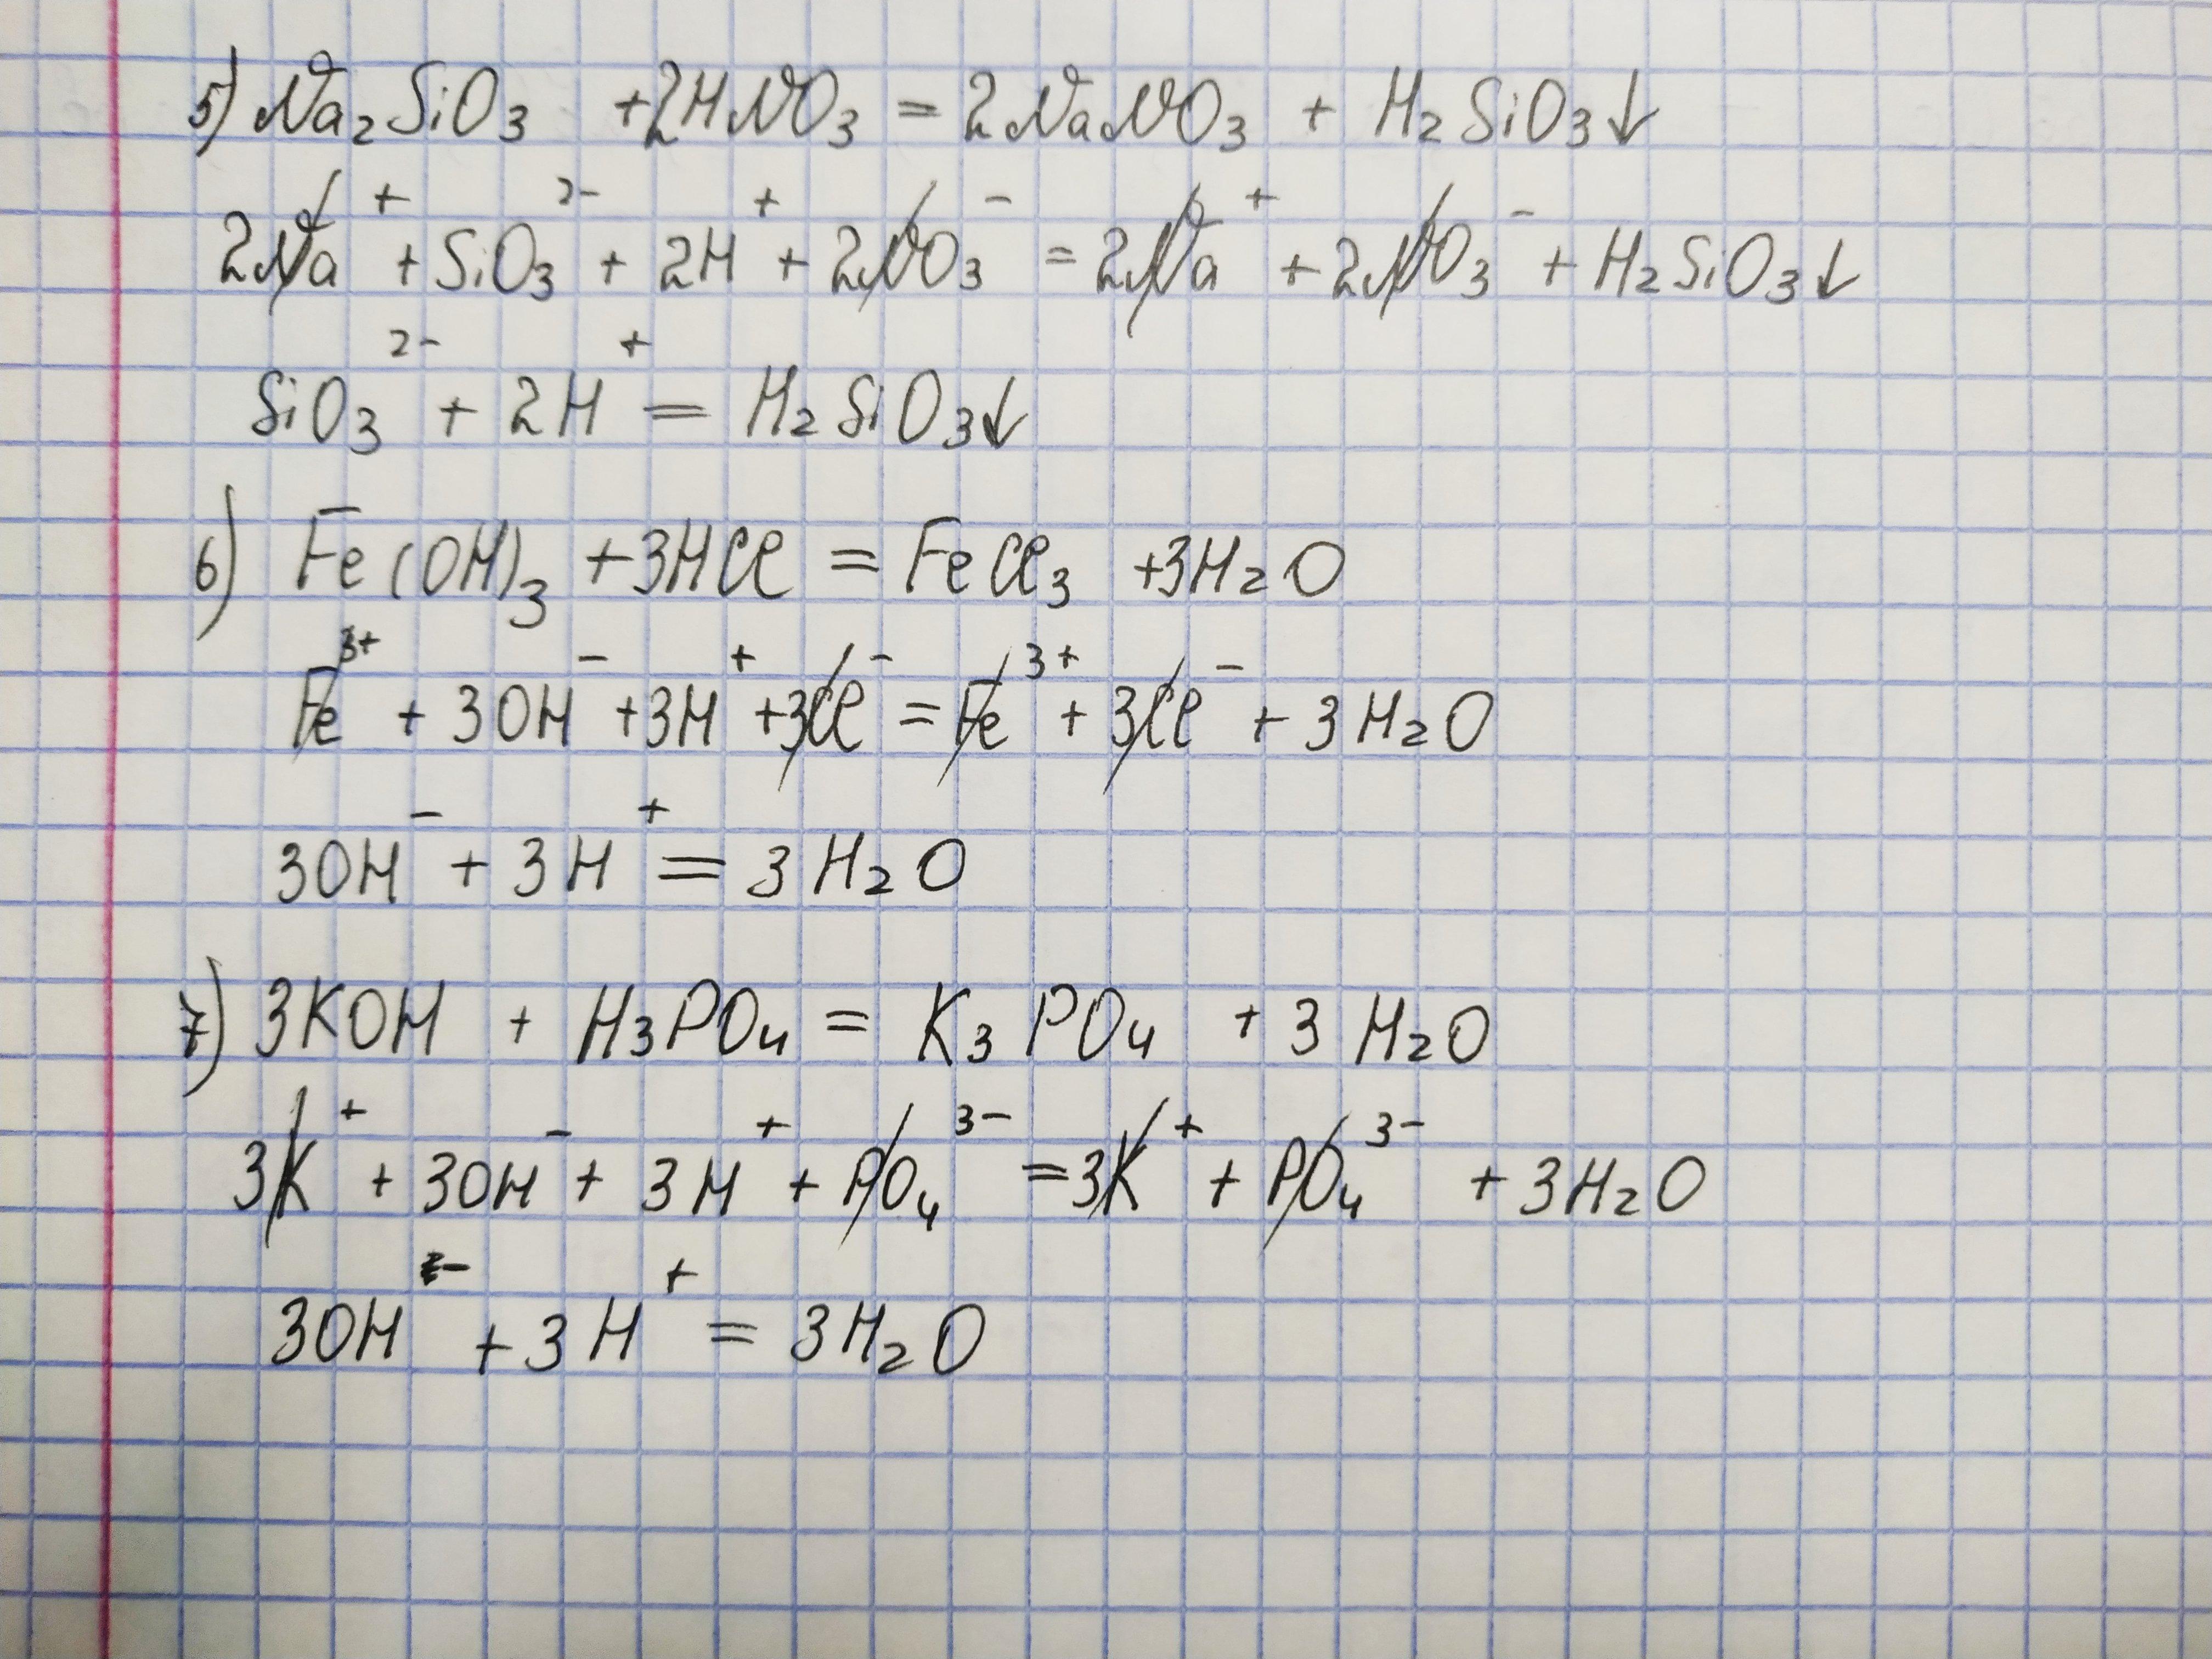 5) Na₂SiO₃ +2HNO₃ = 2NaNO₃ + H₂SiO₃↓
2Na⁺ + SiO₃²⁻ + 2H⁺ + 2NO₃⁻ = 2Na⁺ + 2NO₃⁻ + H₂SiO₃↓
SiO₃²⁻ + 2H⁺ = H₂SiO₃↓
6) Fe(OH)₃ +3HCl = FeCl₃ +3H₂O
Fe³⁺ + 3OH⁻ +3H⁺ +3Cl⁻ = Fe³⁺ + 3Cl⁻ + 3H₂O
3OH⁻ + 3H⁺ = 3H₂O
7) 3KOH + H₃PO₄ = K₃PO₄ + 3H₂O
3K⁺ + 3OH⁻ + 3H⁺ + PO₄³⁻ = 3K⁺ + PO₄³⁻ + 3H₂O
3OH⁻ + 3H⁺ = 3H₂O